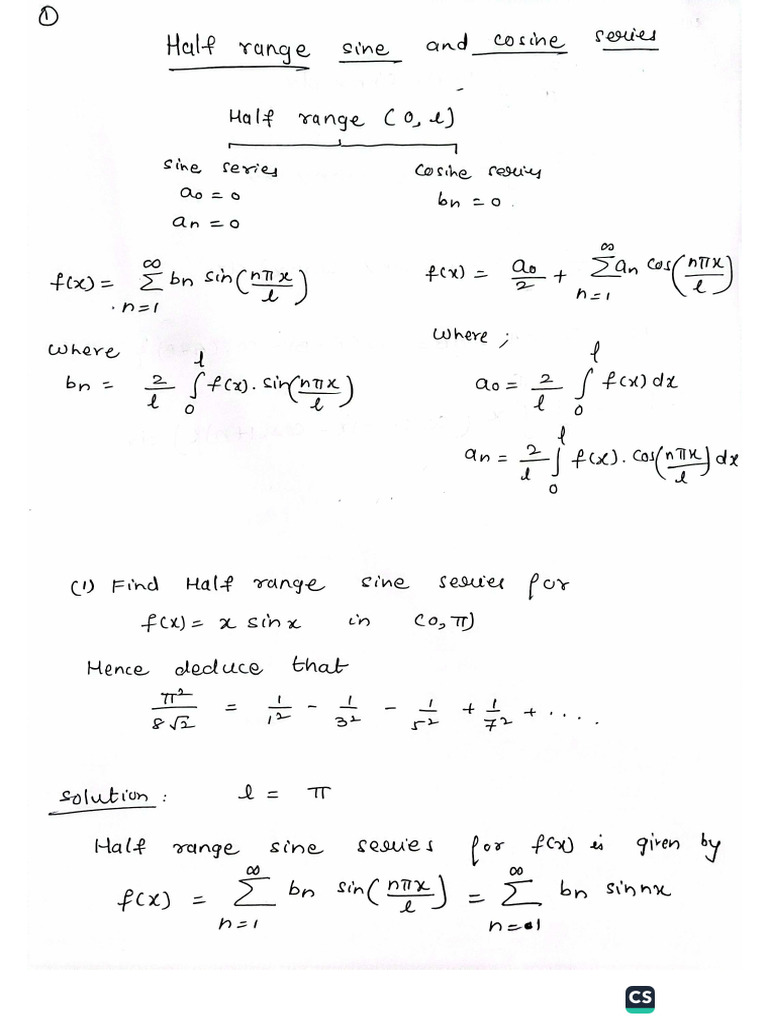 ①
Half range sine and cosine series
Half range (0, l)
sine series
a₀ = 0
aₙ = 0
f(x) = ∑_{n=1}^{∞} bₙ sin(nπx/l)
where
bₙ = 2/l ∫₀^l f(x). sin(nπx/l)
cosine series
bₙ = 0.
f(x) = a₀/2 + ∑_{n=1}^{∞} aₙ cos(nπx/l)
where ;
a₀ = 2/l ∫₀^l f(x) dx
aₙ = 2/l ∫₀^l f(x). cos(nπx/l) dx
(1) Find Half range sine series for
f(x) = x sin x in (0, π)
Hence deduce that
π²/8√2 = 1/1² - 1/3² - 1/5² + 1/7² + ....
Solution : l = π
Half range sine series for f(x) is given by
f(x) = ∑_{n=1}^{∞} bₙ sin(nπx/l) = ∑_{n=1}^{∞} bₙ sin nx
CS